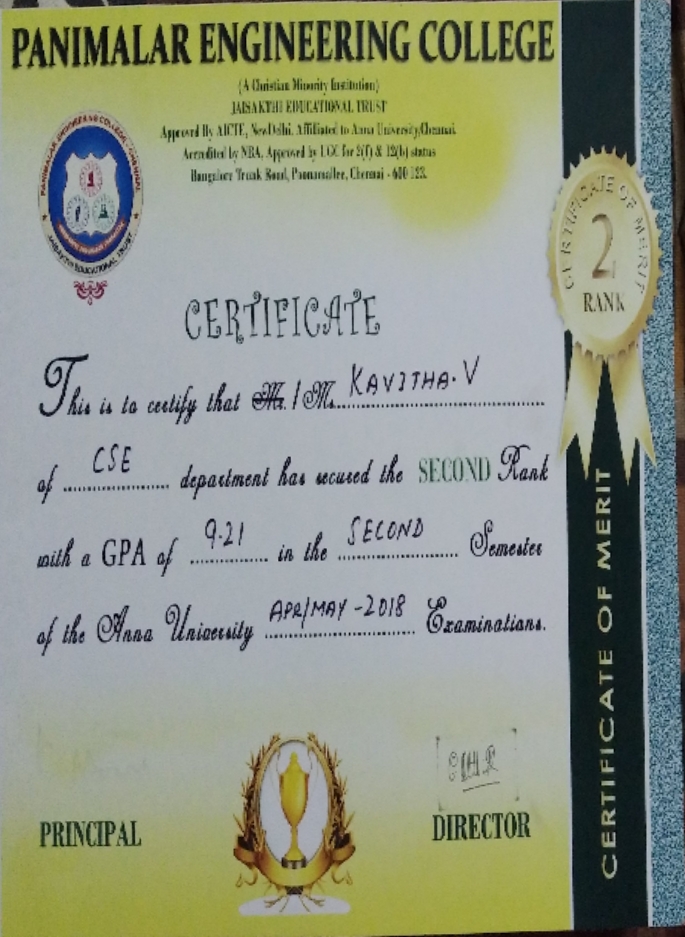 PANIMALAR ENGINEERING COLLEGE
(A Christian Minority Institution)
JAISAKTHI EDUCATIONAL TRUST
Approved By AICTE, NewDelhi. Affiliated to Anna University,Chennai.
Accredited by NBA, Approved by UGC for 2(f) & 12(b) status
Bangalore Trunk Road, Poonamallee, Chennai - 600 123.
PANIMALAR ENGINEERING COLLEGE CHENNAI
JAISAKTHI EDUCATIONAL TRUST
CERTIFICATE OF MERIT
2
RANK
CERTIFICATE
This is to certify that Mr. / Ms. KAVITHA.V
of CSE department has secured the SECOND Rank
with a GPA of 9.21 in the SECOND Semester
of the Anna University APR/MAY-2018 Examinations.
PRINCIPAL
DIRECTOR
CERTIFICATE OF MERIT